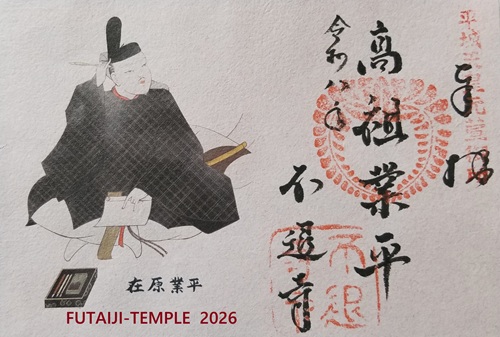 奉拝
高祖業平
令和八年
不退寺
不退
在原業平
FUTAIJI-TEMPLE 2026